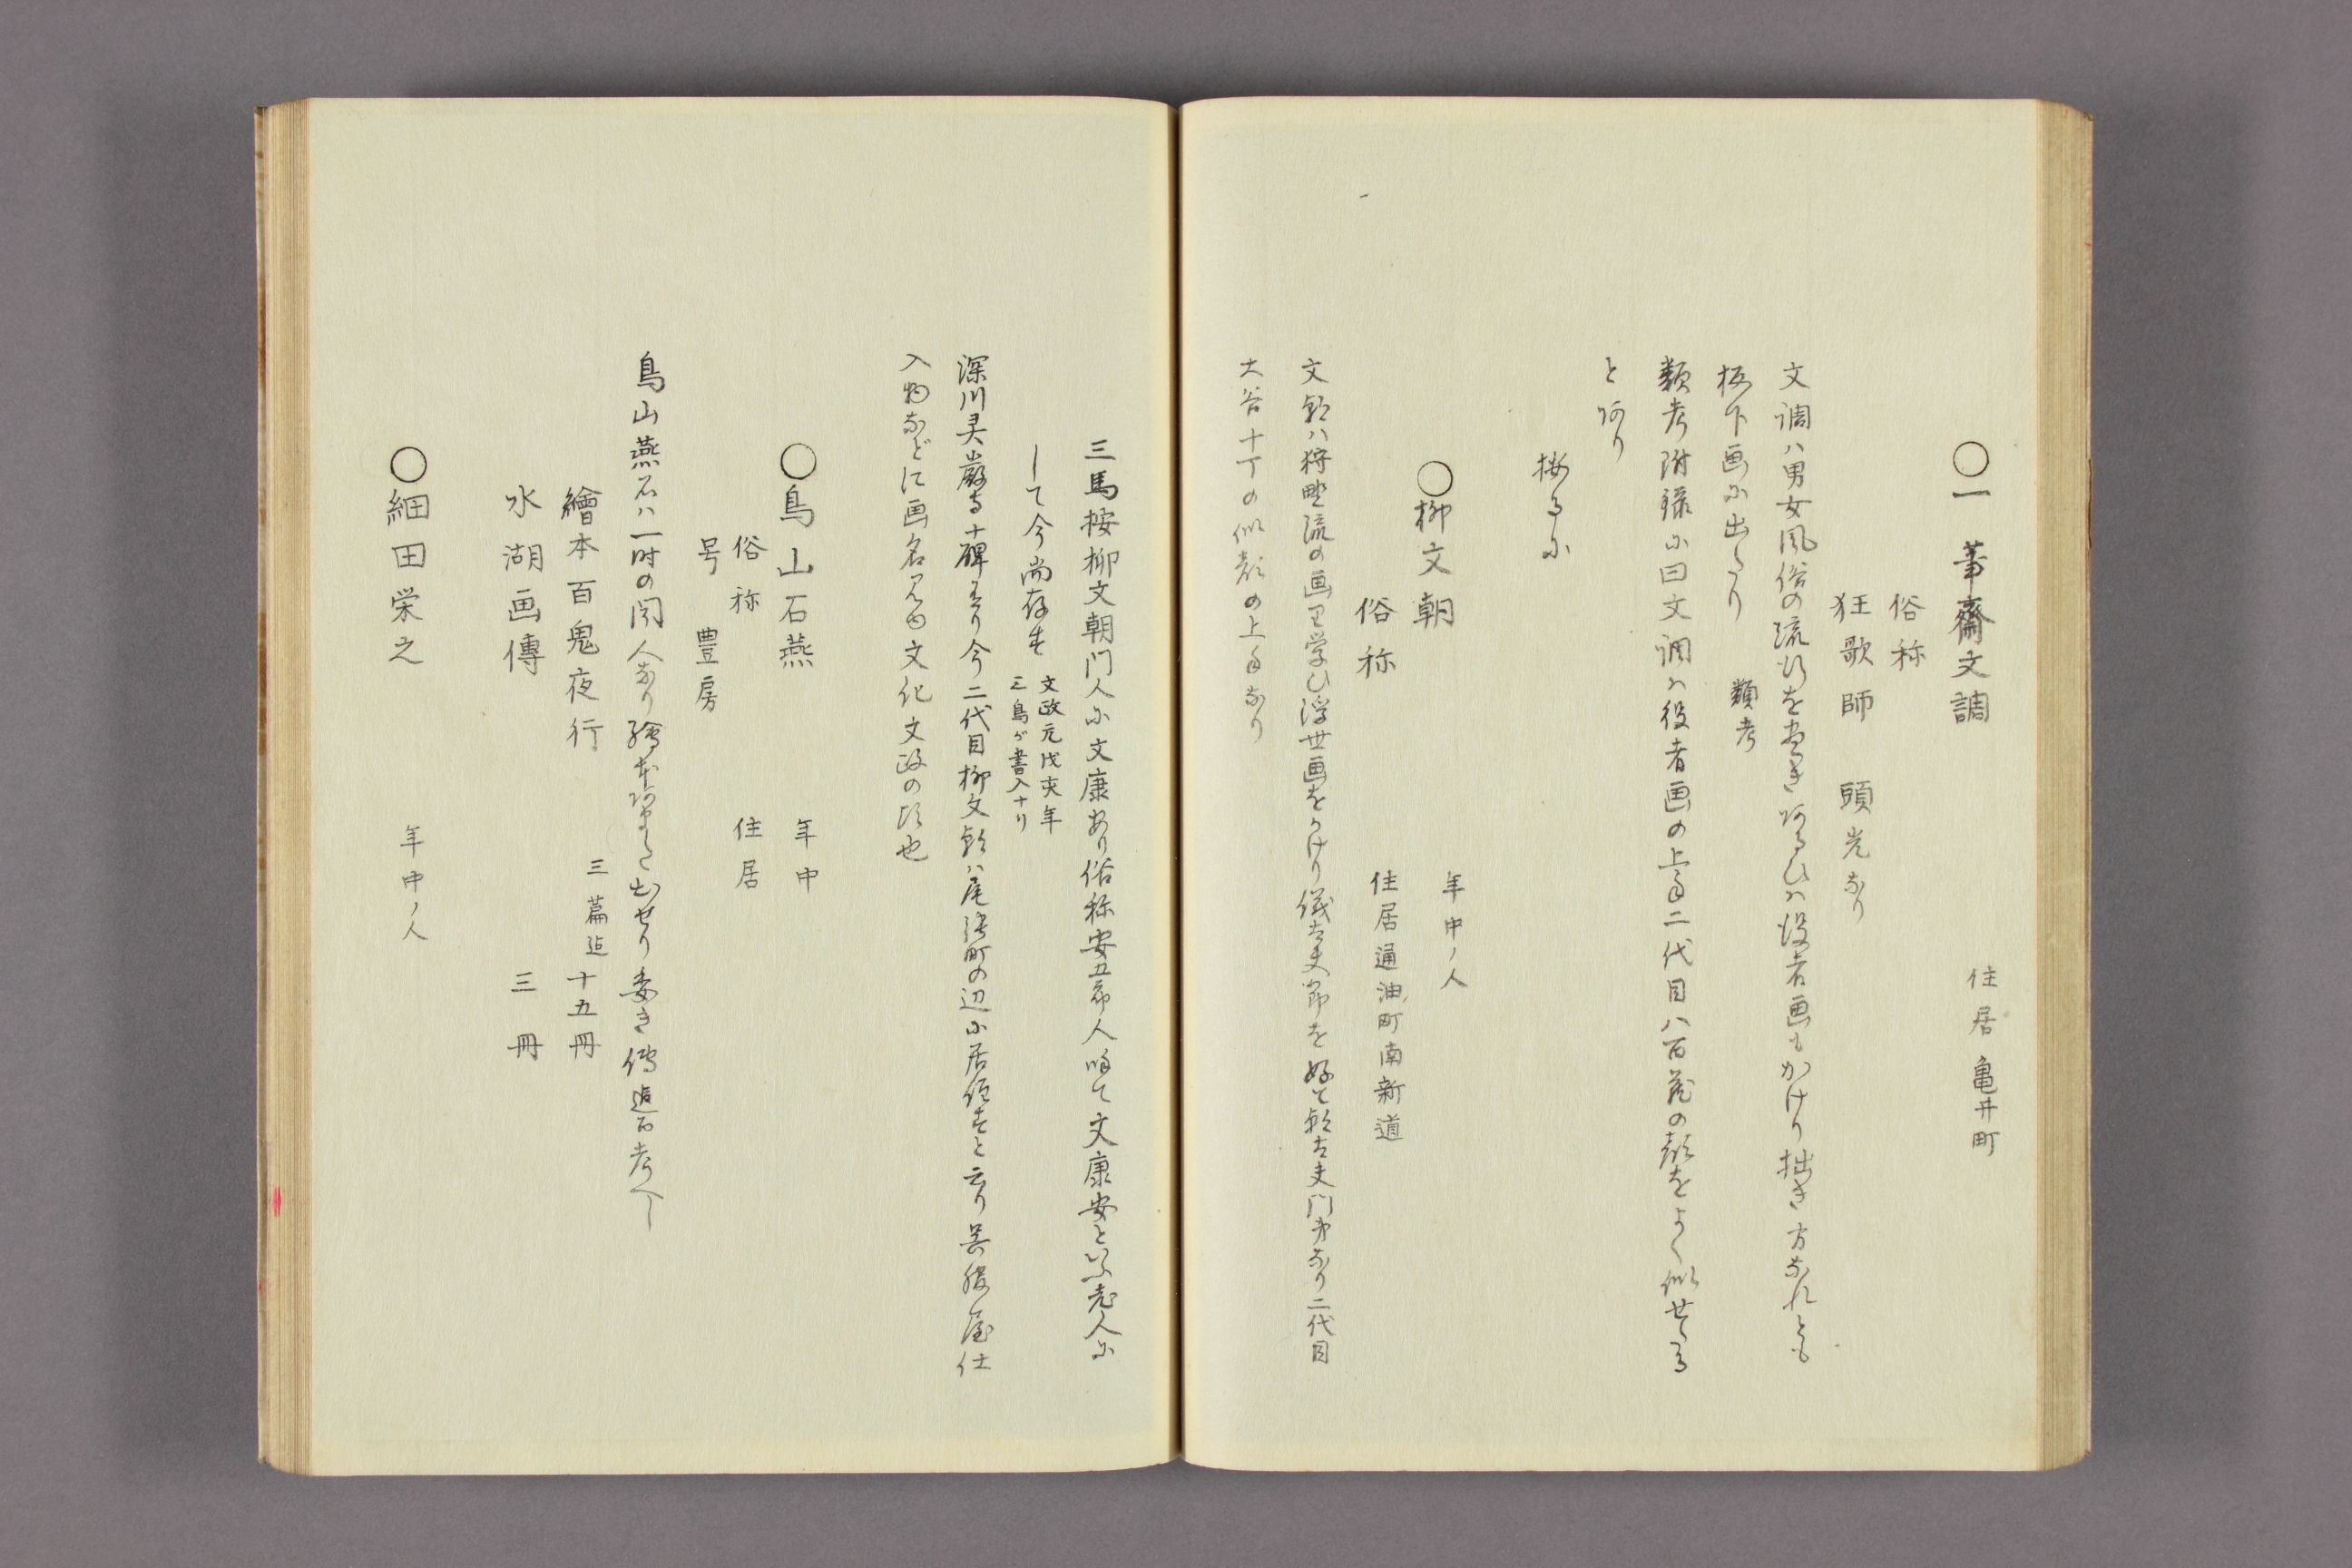 ○一筆齋文調
住居亀井町
俗称
狂歌師 頭光なり
文調ハ男女風俗の流行を畫き或るひハ役者画もかけり拙き方なれとも
板下画に出たり 類考
類考附録に曰文調ハ役者画の上手二代目八百蔵の顔をよく似せたる
とあり
按るに
○柳文朝
年中ノ人
俗称
住居通油町南新道
文朝ハ狩野流の画を学ひ浮世画をかけり儀太夫節を好て朝太夫門弟なり二代目
大谷十丁の似顔の上手なり
三馬按柳文朝門人に文康あり俗称安五郎人呼て文康安といふ老人に
して今尚存す 文政元戊寅年
三馬が書入ナリ
深川灵巖寺ニ碑あり今二代目柳文朝ハ尾張町の辺に居住すと云り呉服屋仕
入物などに画名見ゆ文化文政の頃也
○鳥山石燕
年中
俗称
住居
号 豊房
鳥山燕石ハ一時の聞人なり繪本あまた出せり委き傳追而考へし
繪本百鬼夜行 三篇迠 十五冊
水湖画傳 三冊
○細田栄之
年中ノ人